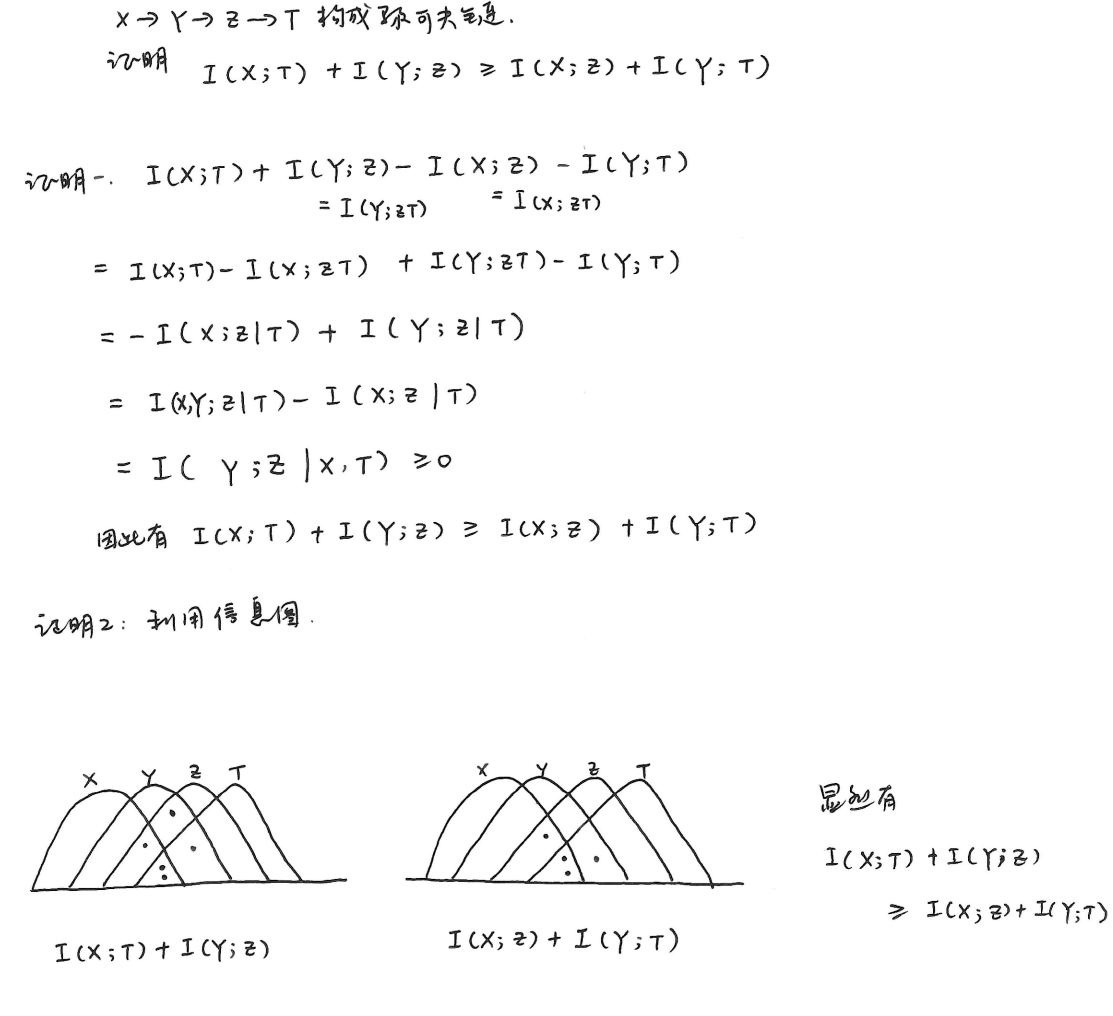 X→Y→Z→T 构成马尔可夫链.
证明 I(X;T) + I(Y;Z) ≥ I(X;Z) + I(Y;T)
证明一. I(X;T) + I(Y;Z) - I(X;Z) - I(Y;T)
= I(Y;ZT) = I(X;ZT)
= I(X;T) - I(X;ZT) + I(Y;ZT) - I(Y;T)
= - I(X;Z|T) + I(Y;Z|T)
= I(X,Y;Z|T) - I(X;Z|T)
= I(Y;Z|X,T) ≥0
因此有 I(X;T) + I(Y;Z) ≥ I(X;Z) + I(Y;T)
证明2: 利用信息图.
X Y Z T
X Y Z T
I(X;T) + I(Y;Z)
I(X;Z) + I(Y;T)
显然有
I(X;T) + I(Y;Z)
≥ I(X;Z) + I(Y;T)